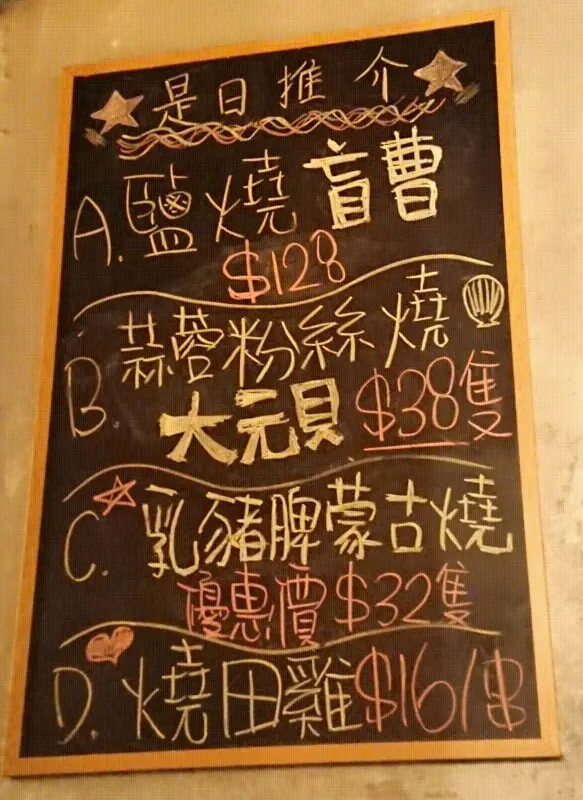 是日推介
A. 鹽燒盲曹
$128
B 蒜蓉粉絲燒
大元貝 $38隻
C. 乳豬脾蒙古燒
優惠價$32隻
D. 燒田雞$16/串